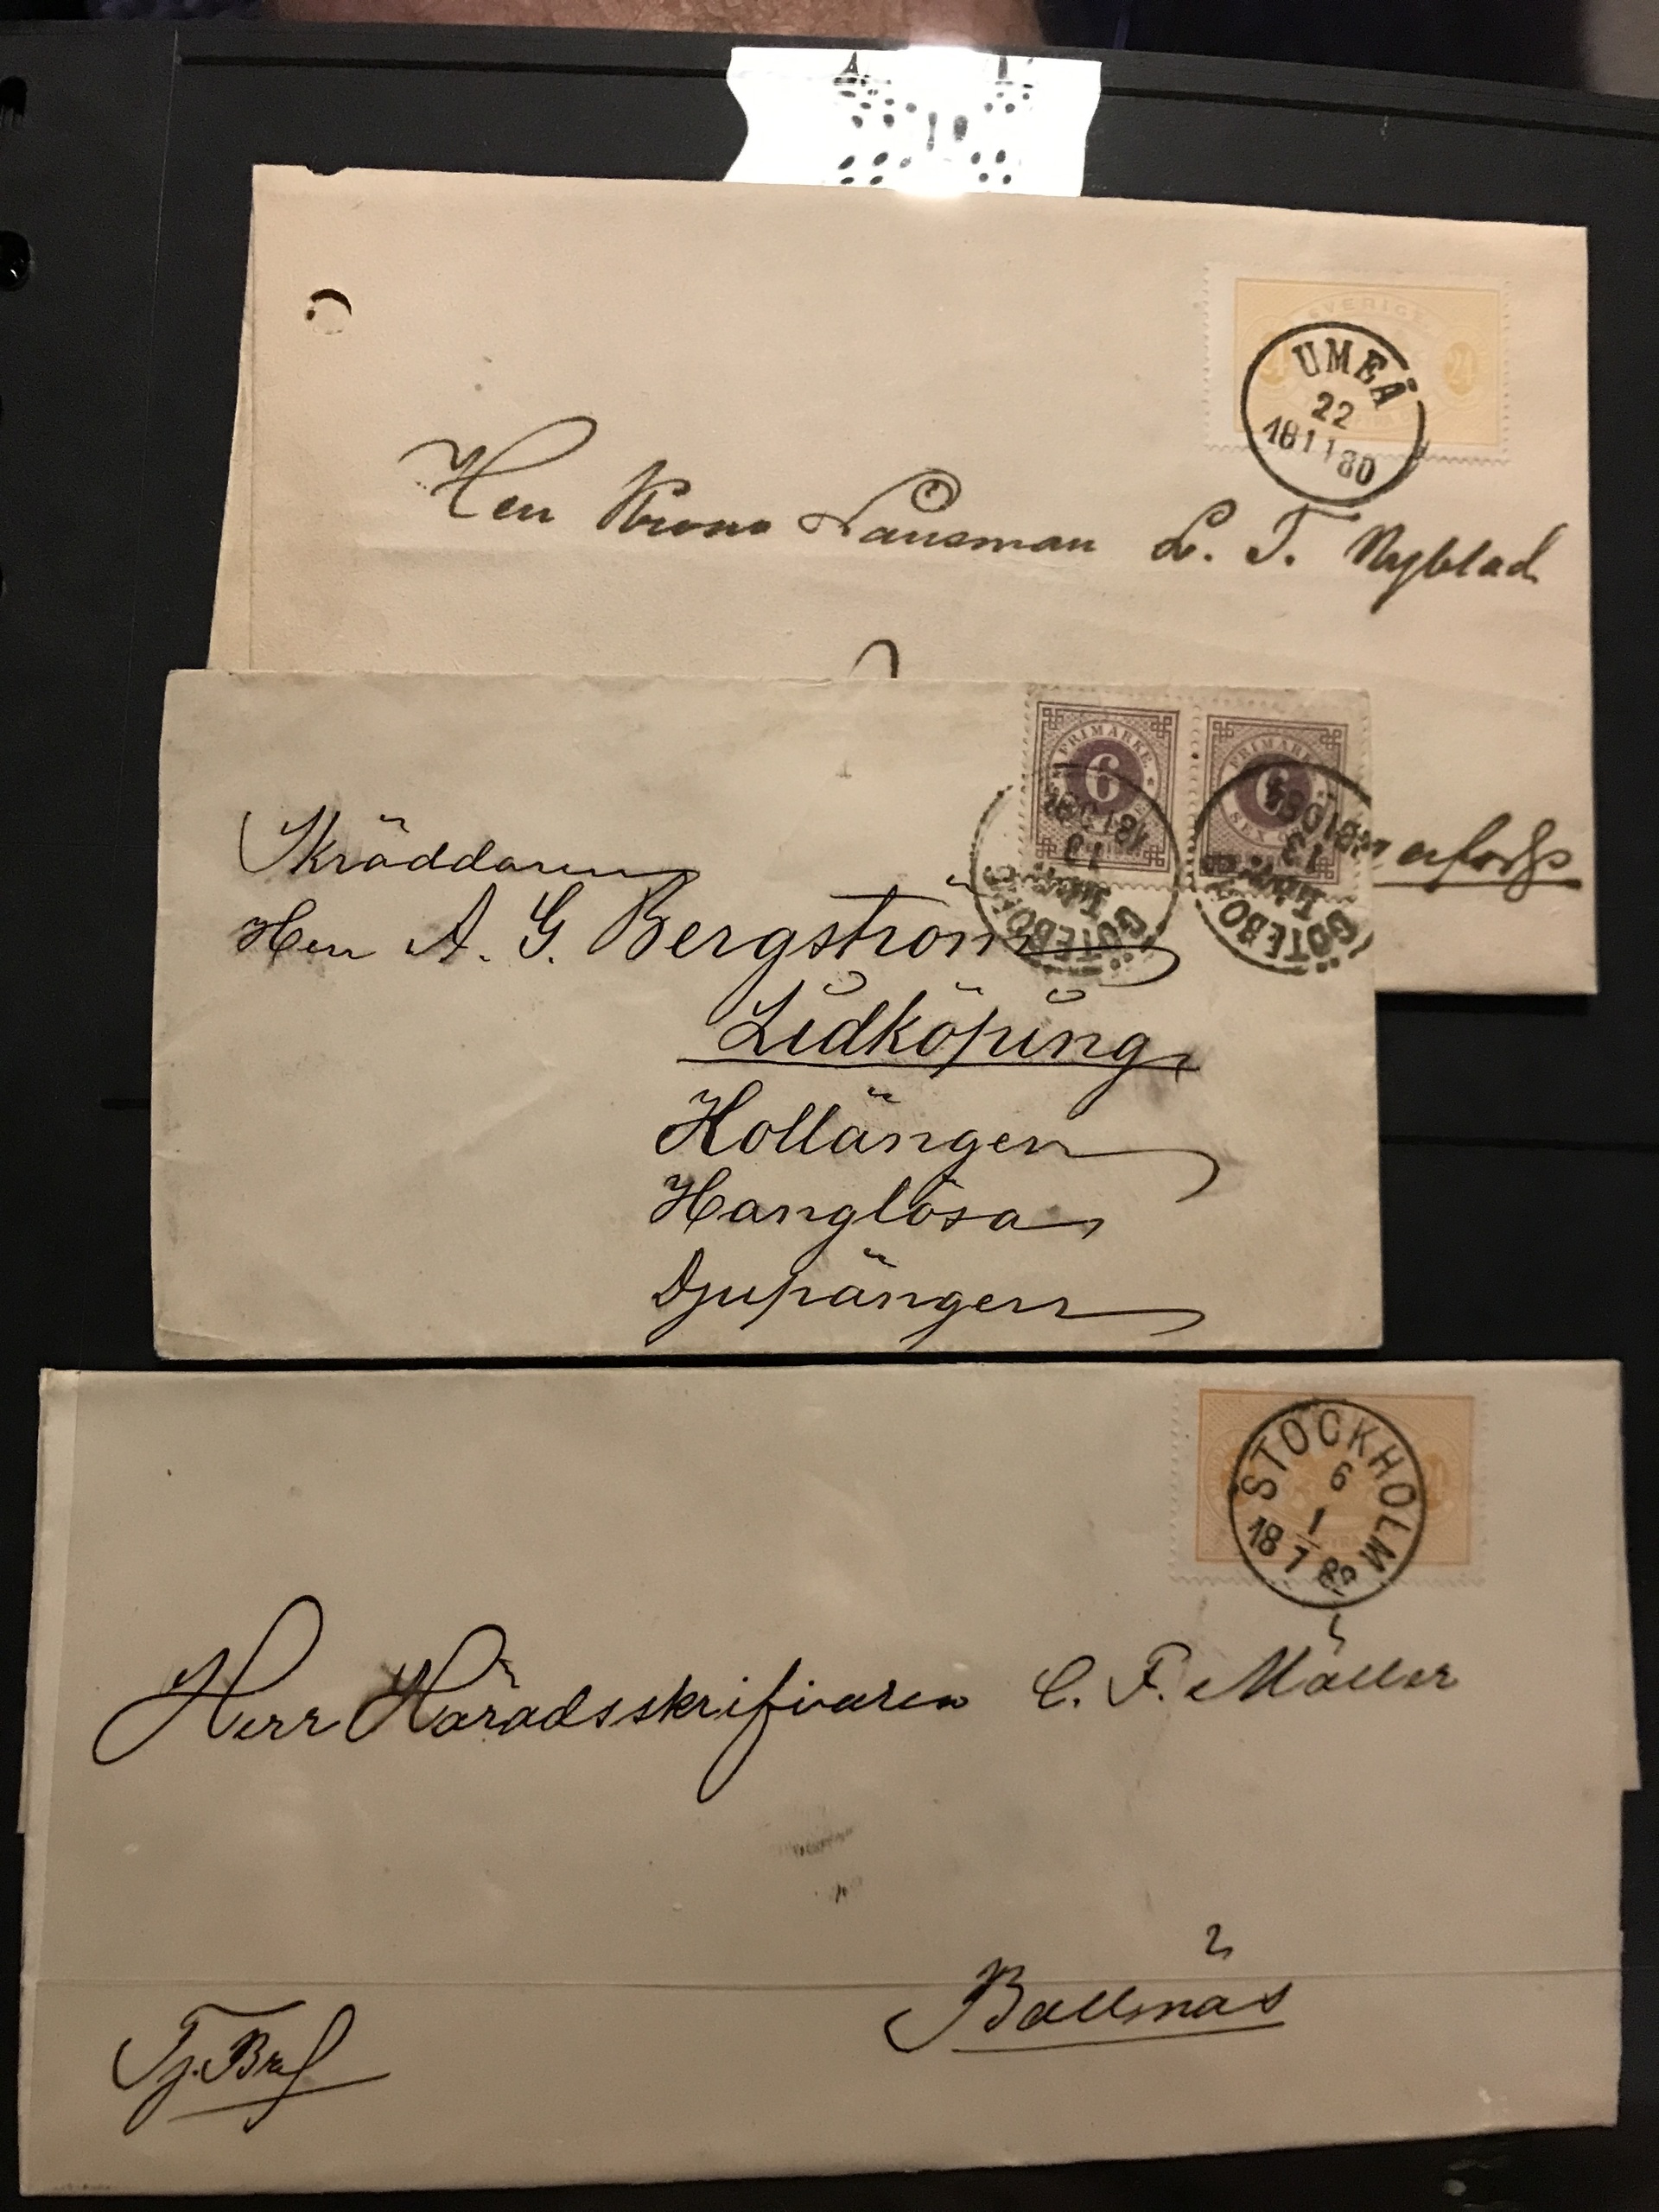 SVERIGE
24 24
UMEÅ
22
1811 80
Herr Krono Länsman L. T. Nyblad
FRIMÄRKE
6
FRIMÄRKE
6
SEX
GÖTEBORG
13
GÖTEBO
13
Skräddaren
Herr A. G. Bergström
Lidköping
Hollängen
Hanglösa
Djupängen
STOCKHOLM
6
1
18
Herr Häradsskrifvaren C. F. Möller
Bollnäs
Tj. Bref